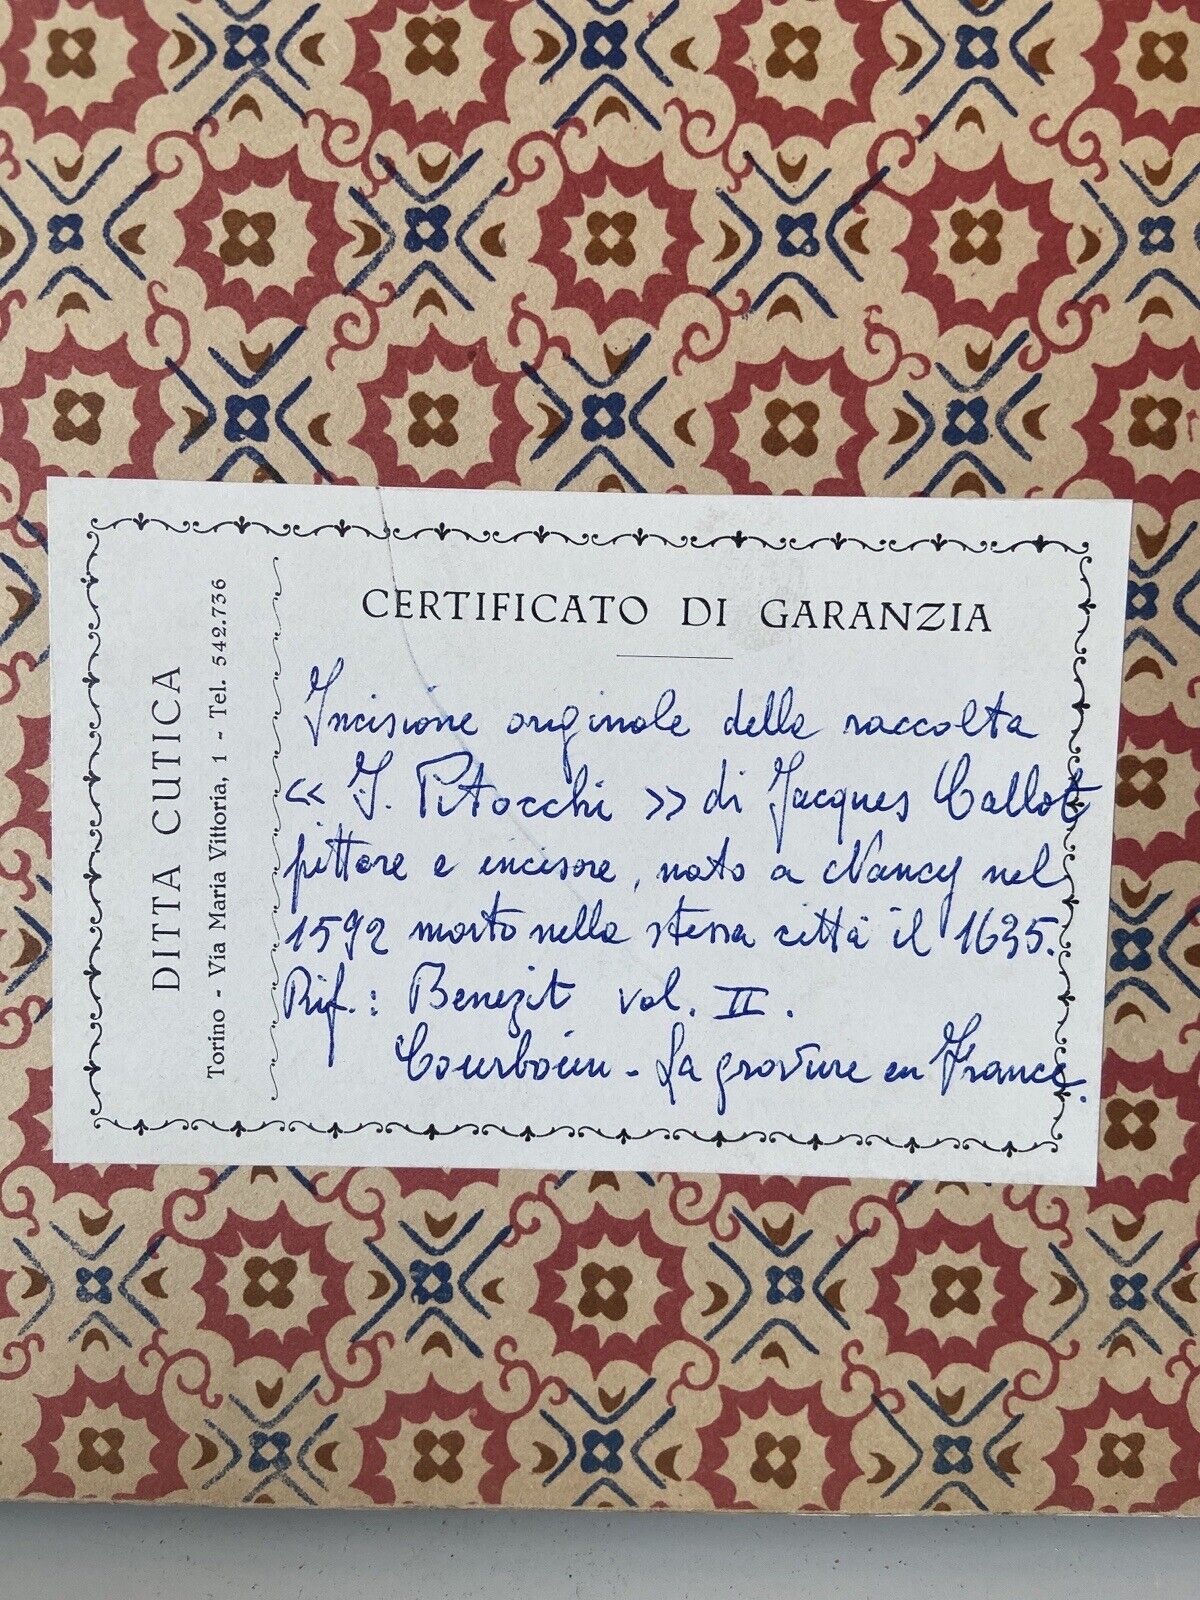 DITTA CUTICA
Torino - Via Maria Vittoria, 1 - Tel. 542.736
CERTIFICATO DI GARANZIA
Incisione originale della raccolta
« I. Pitocchi » di Jacques Callot
pittore e incisore, nato a Nancy nel
1592 morto nella stessa città il 1635.
Rif.: Benezit vol. II.
Courboin - La gravure en France.